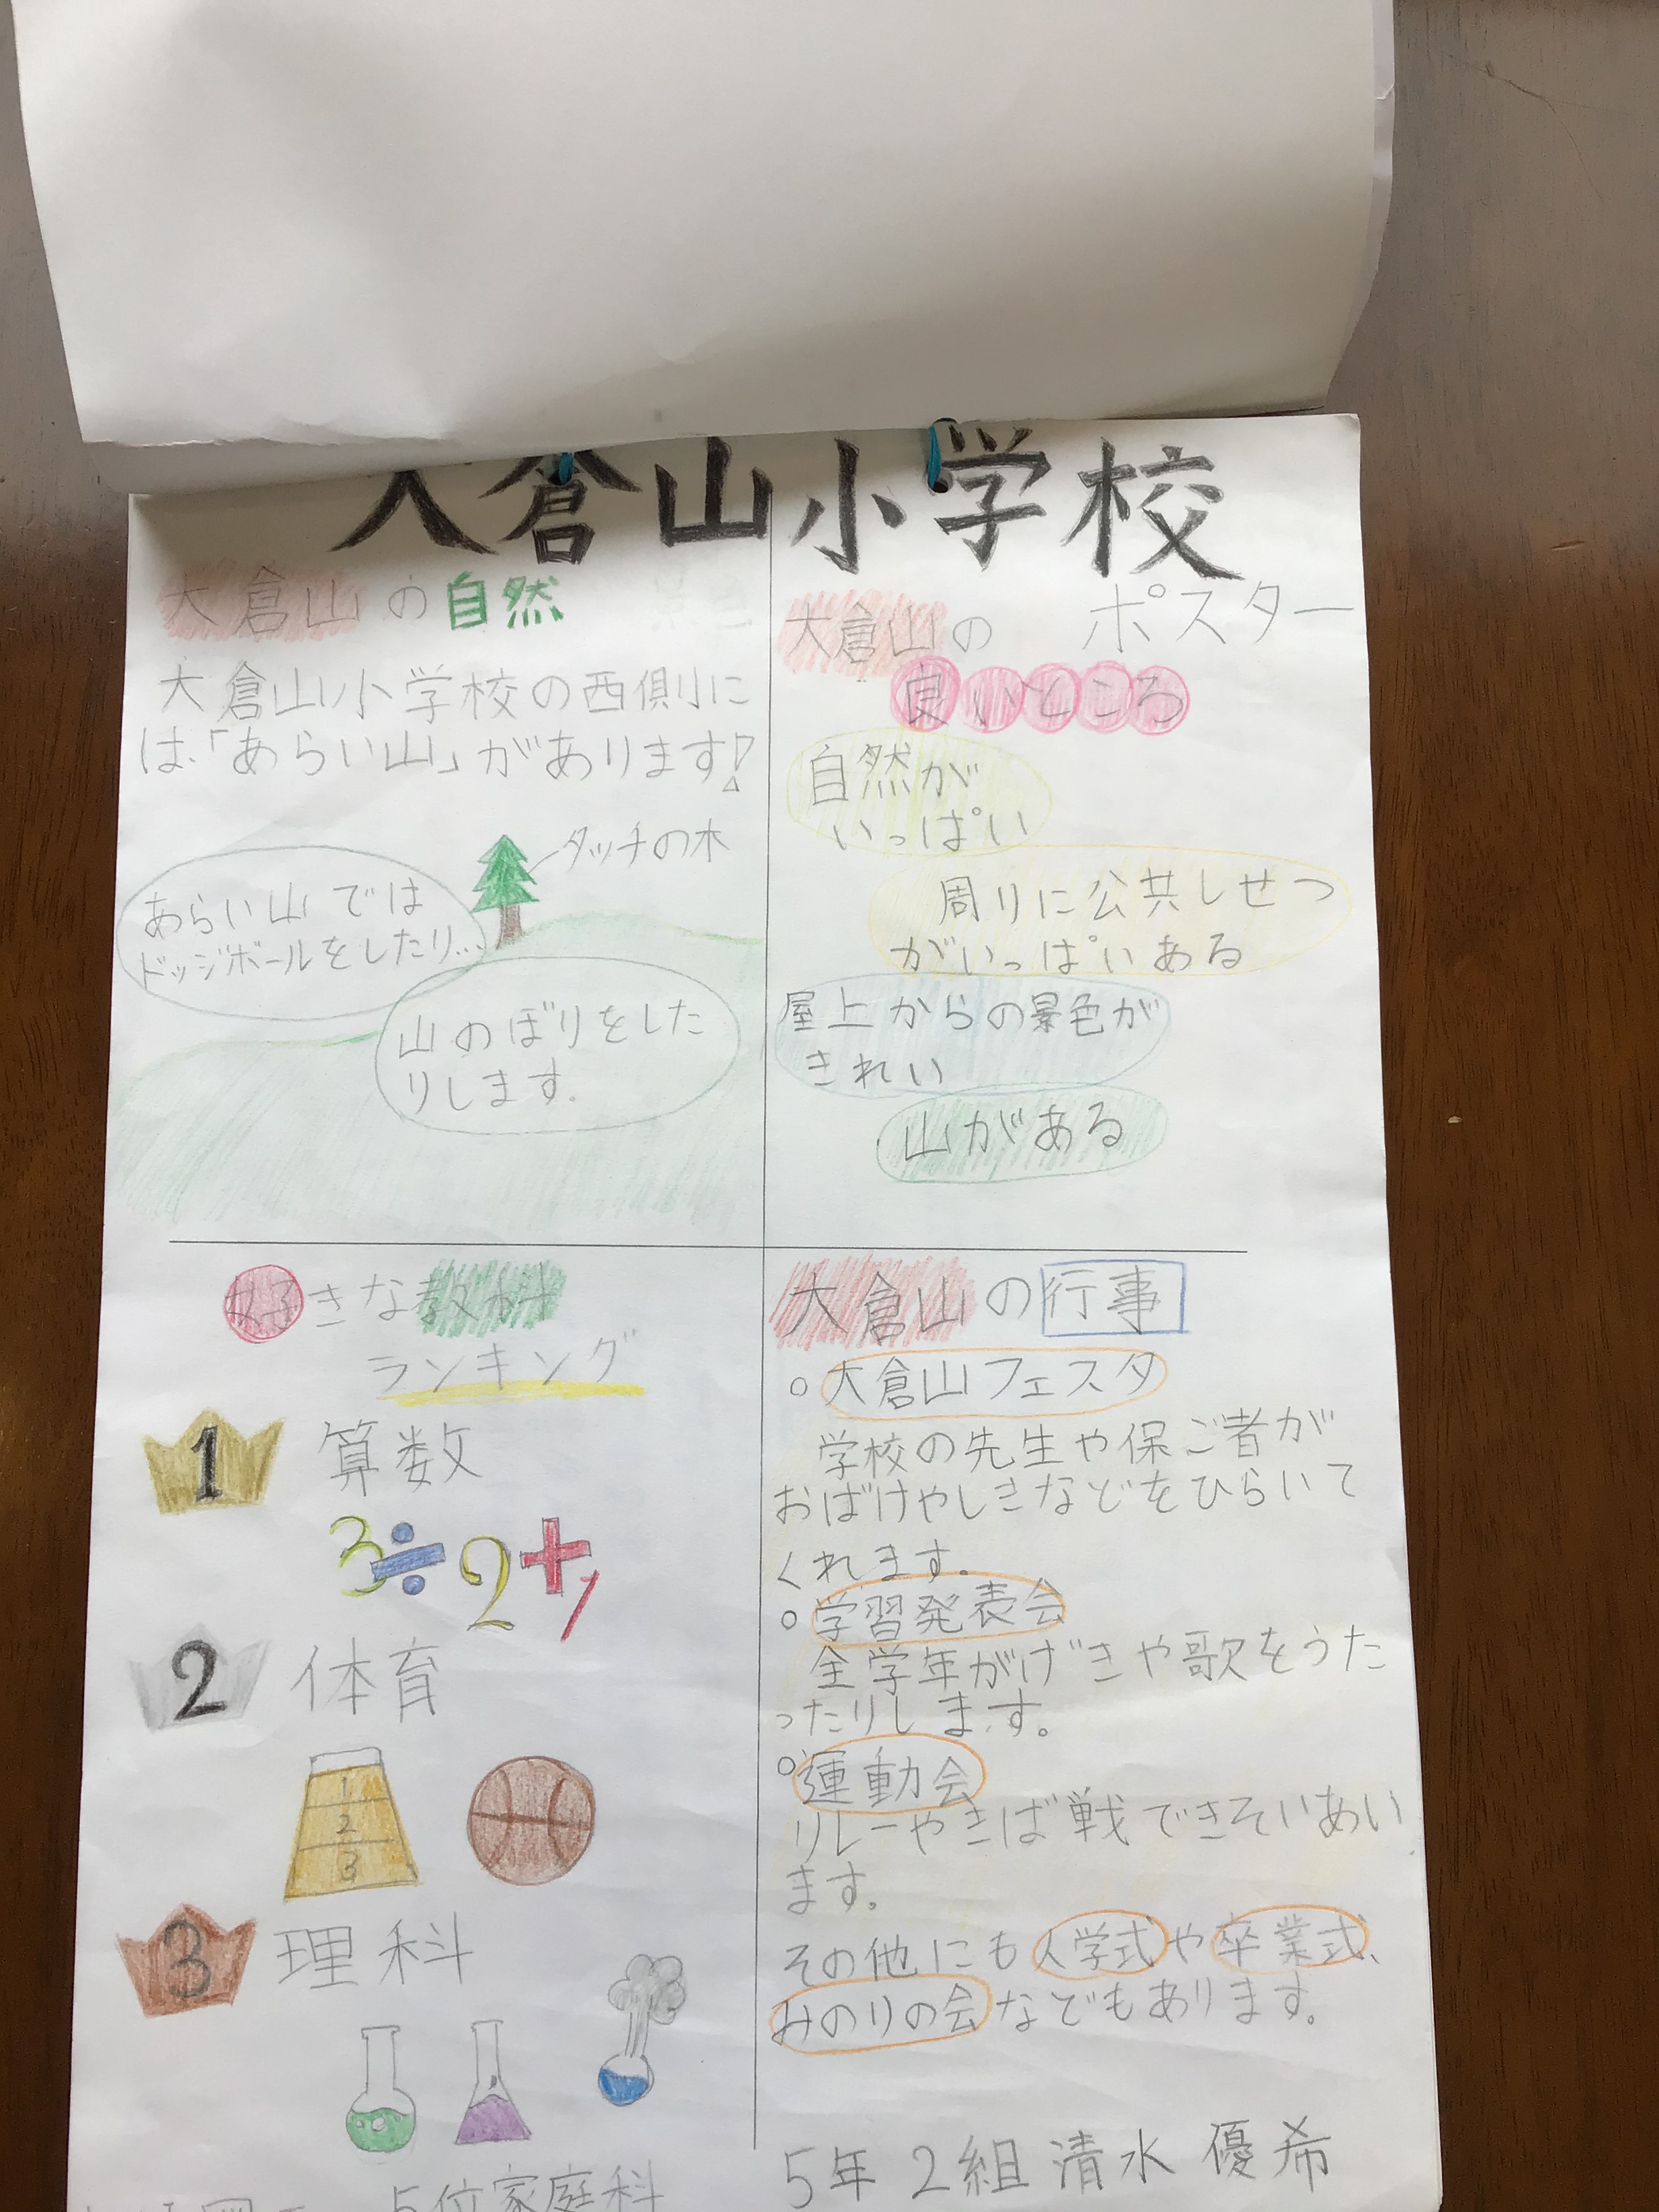 大倉山小学校
ポスター
大倉山の自然
大倉山小学校の西側に
は、「あらい山」があります!
タッチの木
あらい山では
ドッジボールをしたり…
山のぼりをした
りします。
大倉山の
良いところ
自然が
いっぱい
周りに公共しせつ
がいっぱいある
屋上からの景色が
きれい
山がある
好きな教科
ランキング
1 算数
3÷2+1
2 体育
1
2
3
3 理科
5位家庭科
大倉山の行事
○大倉山フェスタ
学校の先生や保ご者が
おばけやしきなどをひらいて
くれます。
○学習発表会
全学年がげきや歌をうた
ったりします。
○運動会
リレーやきば戦できそいあい
ます。
その他にも入学式や卒業式、
みのりの会などもあります。
5年2組清水優希